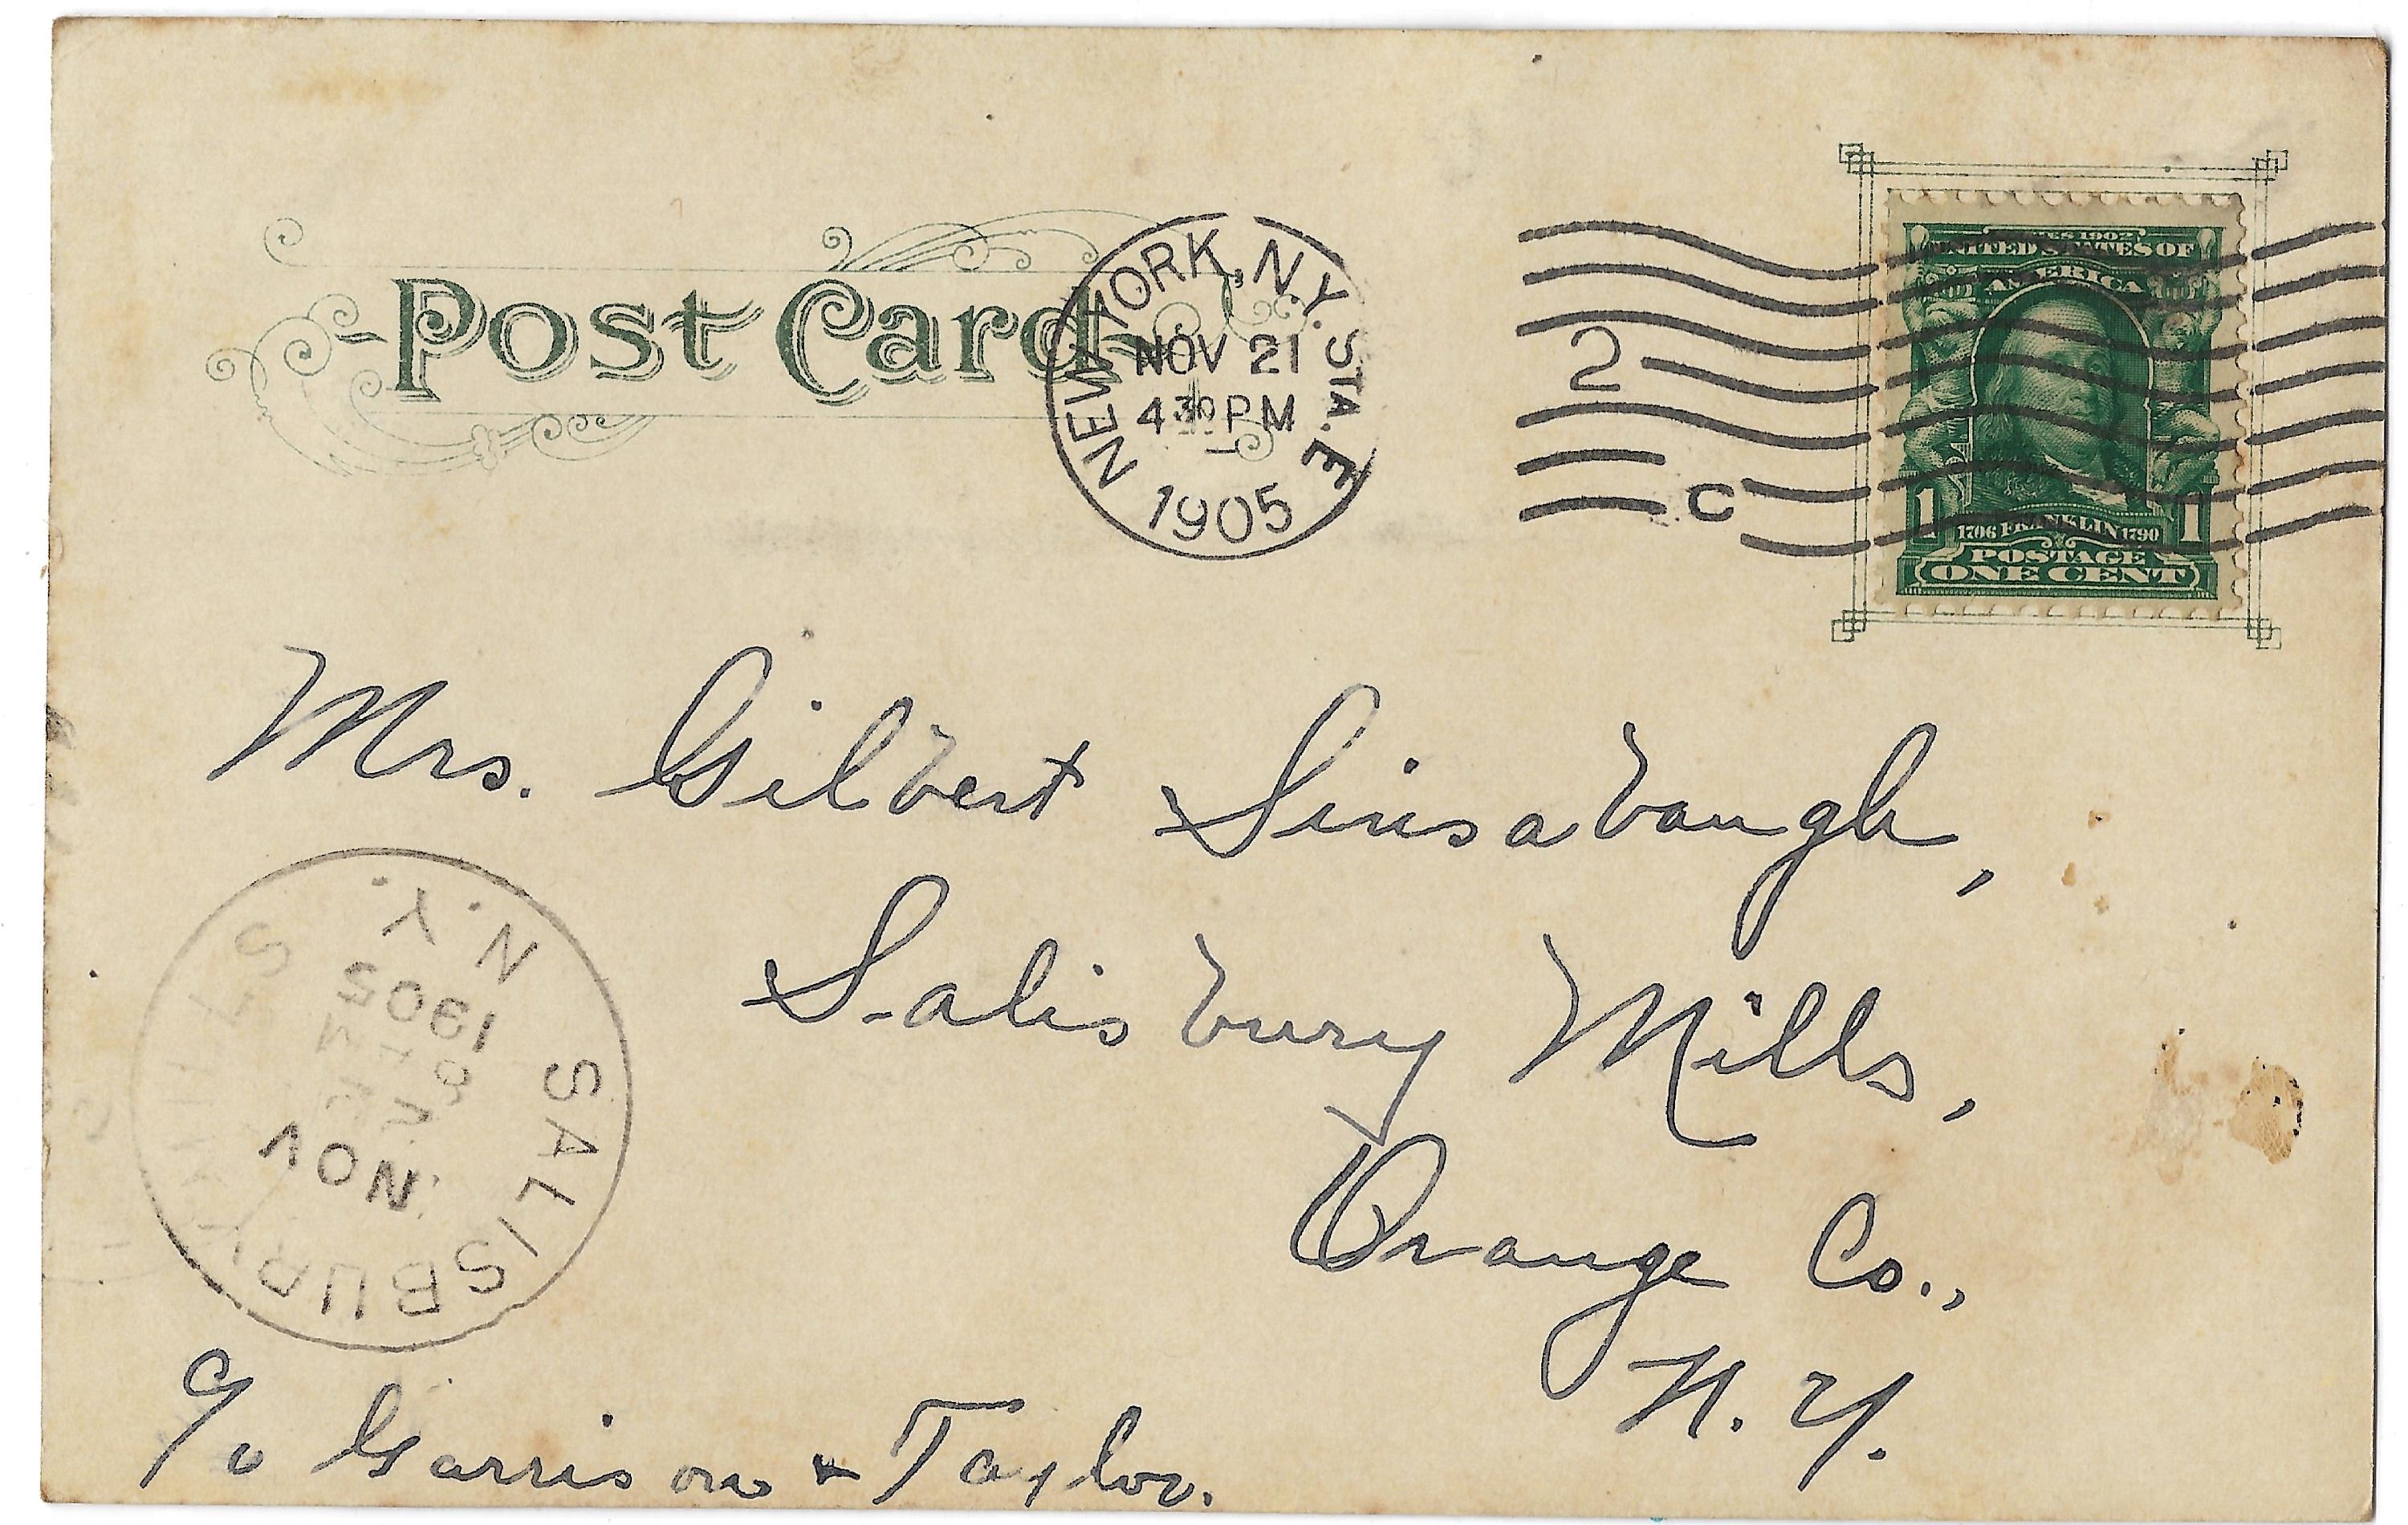 Post Card
NEW YORK, N.Y. STA. E
NOV 21
4 30 PM
1905
2
C
SERIES 1902
UNITED STATES OF
AMERICA
1 1
1706 FRANKLIN 1790
POSTAGE
ONE CENT
Mrs. Gilbert Sinsabaugh,
Salisbury Mills,
Orange Co.,
N. Y.
SALISBURY MILLS N.Y.
NOV
1905
c/o Garrison & Taylor.